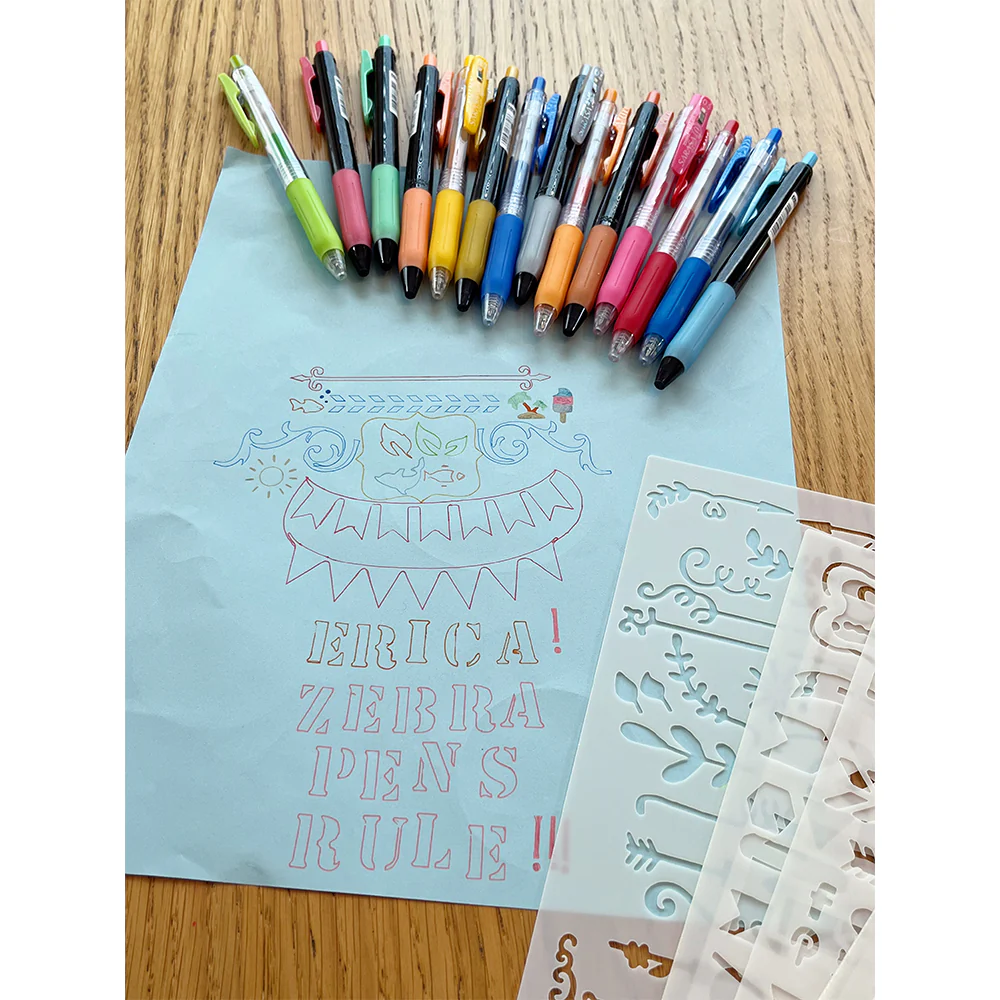 ERICA!
ZEBRA
PENS
RULE!!!